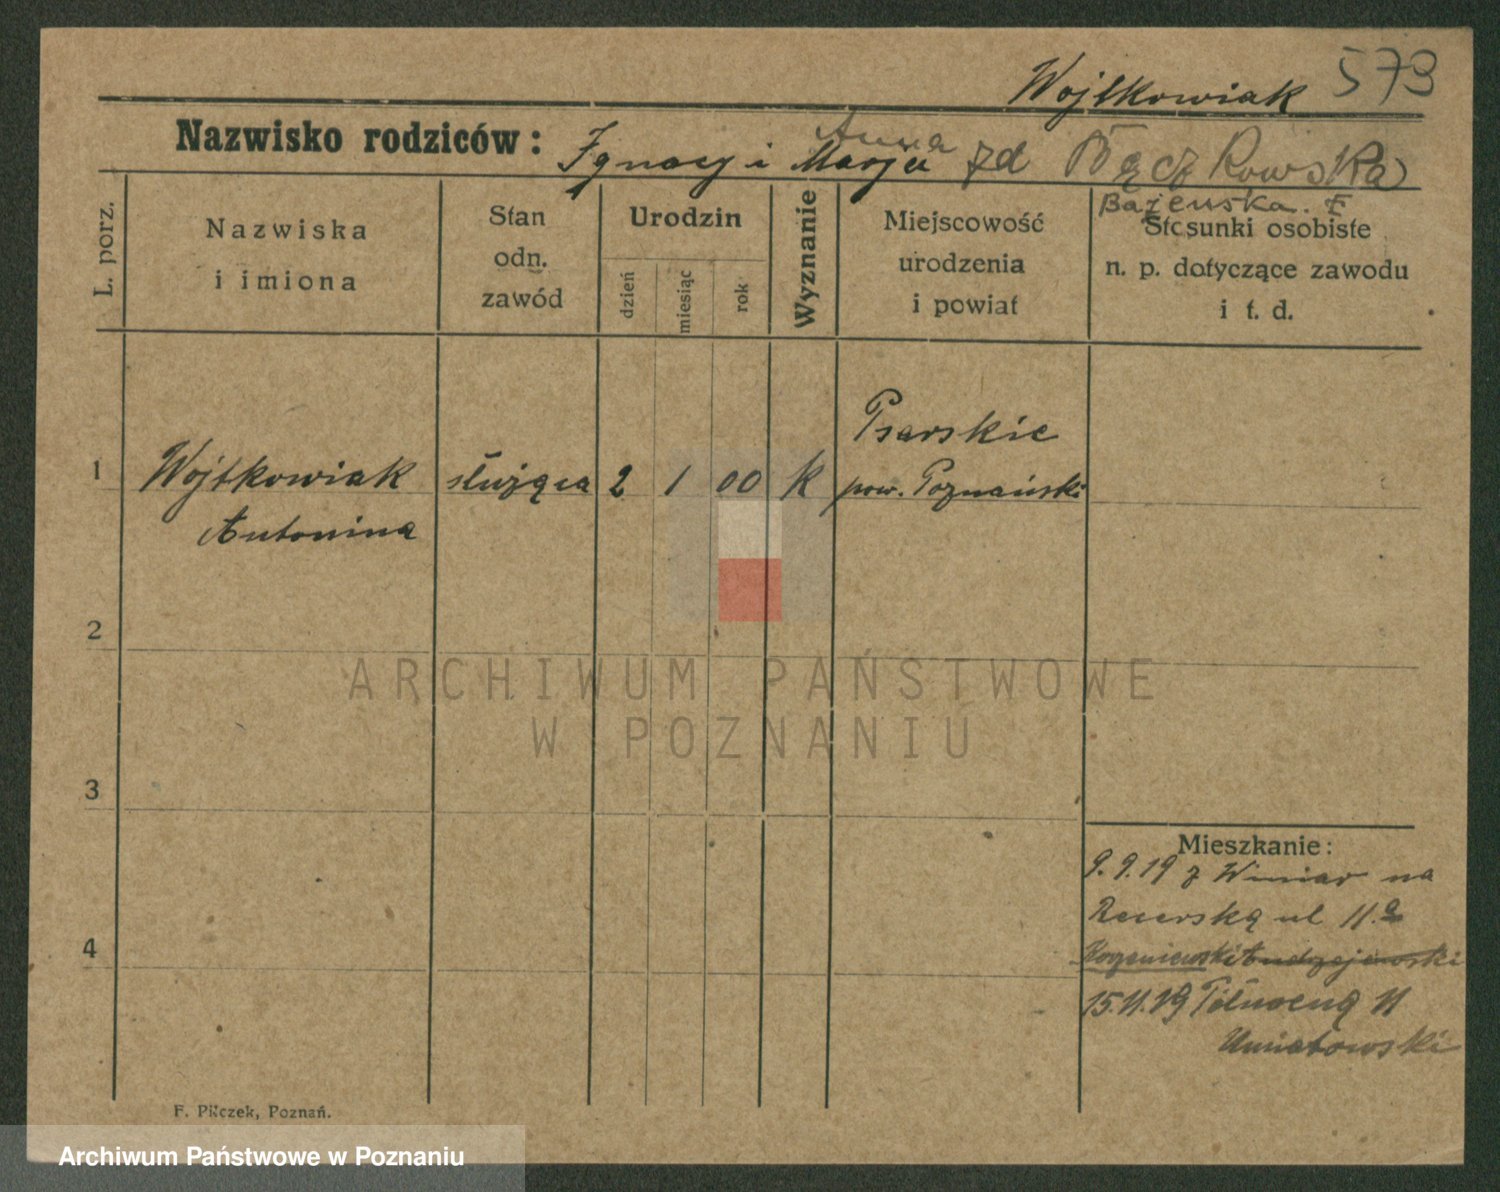 Wojtkowiak 573
Nazwisko rodziców: Ignacy i Marja Anna zd Bączkowska
Bajeńska. F
L. porz.
Nazwiska
i imiona
Stan
odn.
zawód
Urodzin
dzień
miesiąc
rok
Wyznanie
Miejscowość
urodzenia
i powiat
Stosunki osobiste
n. p. dotyczące zawodu
i t. d.
1 Wojtkowiak służąca 2 1 00 k Psarskie
Antonina pow. Poznański
2
3
4
Mieszkanie:
9.9.19 z Winiar na
ul 11.a
Korzeniewski Andrzejewski
15.11.19 Północną 11
Umiatowski
F. Pilczek, Poznań.
ARCHIWUM PAŃSTWOWE
W POZNANIU
Archiwum Państwowe w Poznaniu